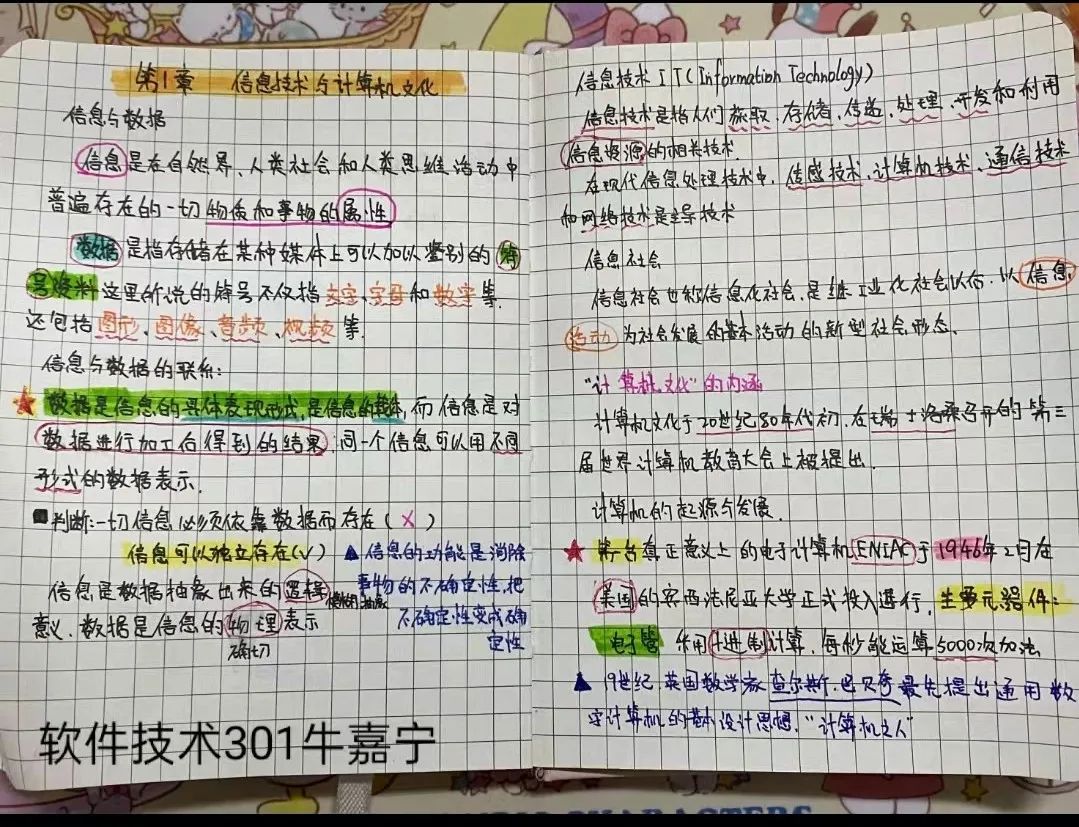 第1章 信息技术与计算机文化
信息与数据
信息是在自然界、人类社会和人类思维活动中
普遍存在的一切物质和事物的属性
数据是指存储在某种媒体上可以加以鉴别的符
号资料这里所说的符号不仅指文字、字母和数字等,
还包括图形、图像、音频、视频等.
信息与数据的联系:
数据是信息的具体表现形式,是信息的载体,而信息是对
数据进行加工后得到的结果,同一个信息可以用不同
形式的数据表示.
判断:一切信息必须依靠数据而存在(×)
信息可以独立存在(√)
信息是数据抽象出来的逻辑
意义.数据是信息的物理表示
模糊 抽象
确切
▲信息的功能是消除
事物的不确定性,把
不确定性变成确
定性
软件技术301牛嘉宁
信息技术IT(Information Technology)
信息技术是指人们获取、存储、传递、处理、开发和利用
信息资源的相关技术.
在现代信息处理技术中,传感技术、计算机技术、通信技术
和网络技术是主导技术
信息社会
信息社会也称信息化社会,是继工业化社会以后,以信息
活动为社会发展的基本活动的新型社会形态、
"计算机文化"的内涵
计算机文化于20世纪80年代初,在瑞士洛桑召开的第三
届世界计算机教育大会上被提出.
计算机的起源与发展.
★第一台真正意义上的电子计算机ENIAC于1946年2月在
美国的宾西法尼亚大学正式投入运行,主要元器件:
电子管 采用十进制计算,每秒能运算5000次加法
▲19世纪,英国数学家查尔斯·巴贝奇最先提出通用数
字计算机的基本设计思想."计算机之人"